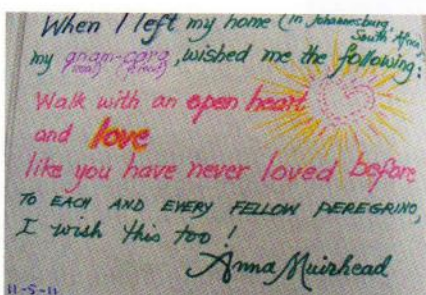 When I left my home (in Johannesburg,
South Africa)
my anam-cara, wished me the following:
(soul) (friend)
Walk with an open heart
and love
like you have never loved before
TO EACH AND EVERY FELLOW PEREGRINO,
I wish this too!
Anna Muirhead
11-5-11